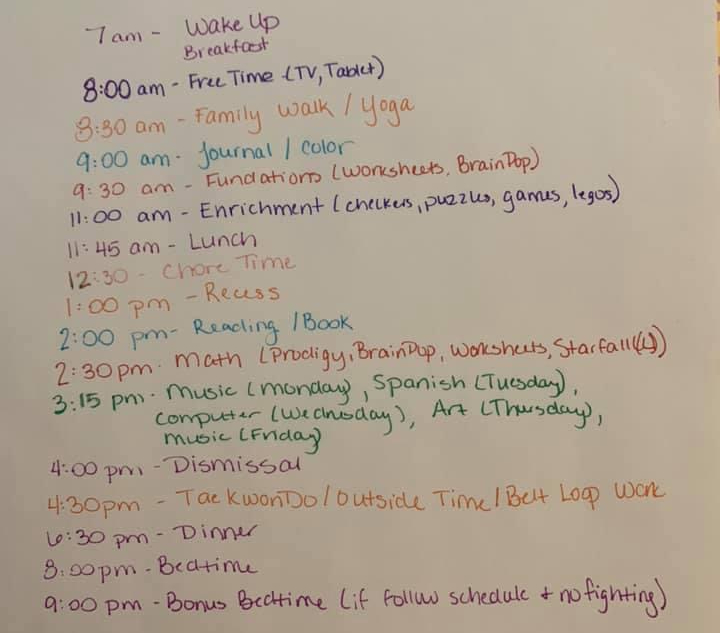 7am - Wake Up
Breakfast
8:00 am - Free Time (TV, Tablet)
8:30 am - Family Walk / Yoga
9:00 am - Journal / Color
9:30 am - Fundations (Worksheets, BrainPop)
11:00 am - Enrichment (checkers, puzzles, games, legos)
11:45 am - Lunch
12:30 - Chore Time
1:00 pm - Recess
2:00 pm - Reading / Book
2:30pm - Math (Prodigy, BrainPop, Worksheets, Starfall (L))
3:15 pm - Music (Monday), Spanish (Tuesday),
Computer (Wednesday), Art (Thursday),
Music (Friday)
4:00 pm - Dismissal
4:30pm - TaeKwonDo / Outside Time / Belt Loop Work
6:30 pm - Dinner
8:00pm - Bedtime
9:00 pm - Bonus Bedtime (if follow schedule + no fighting)